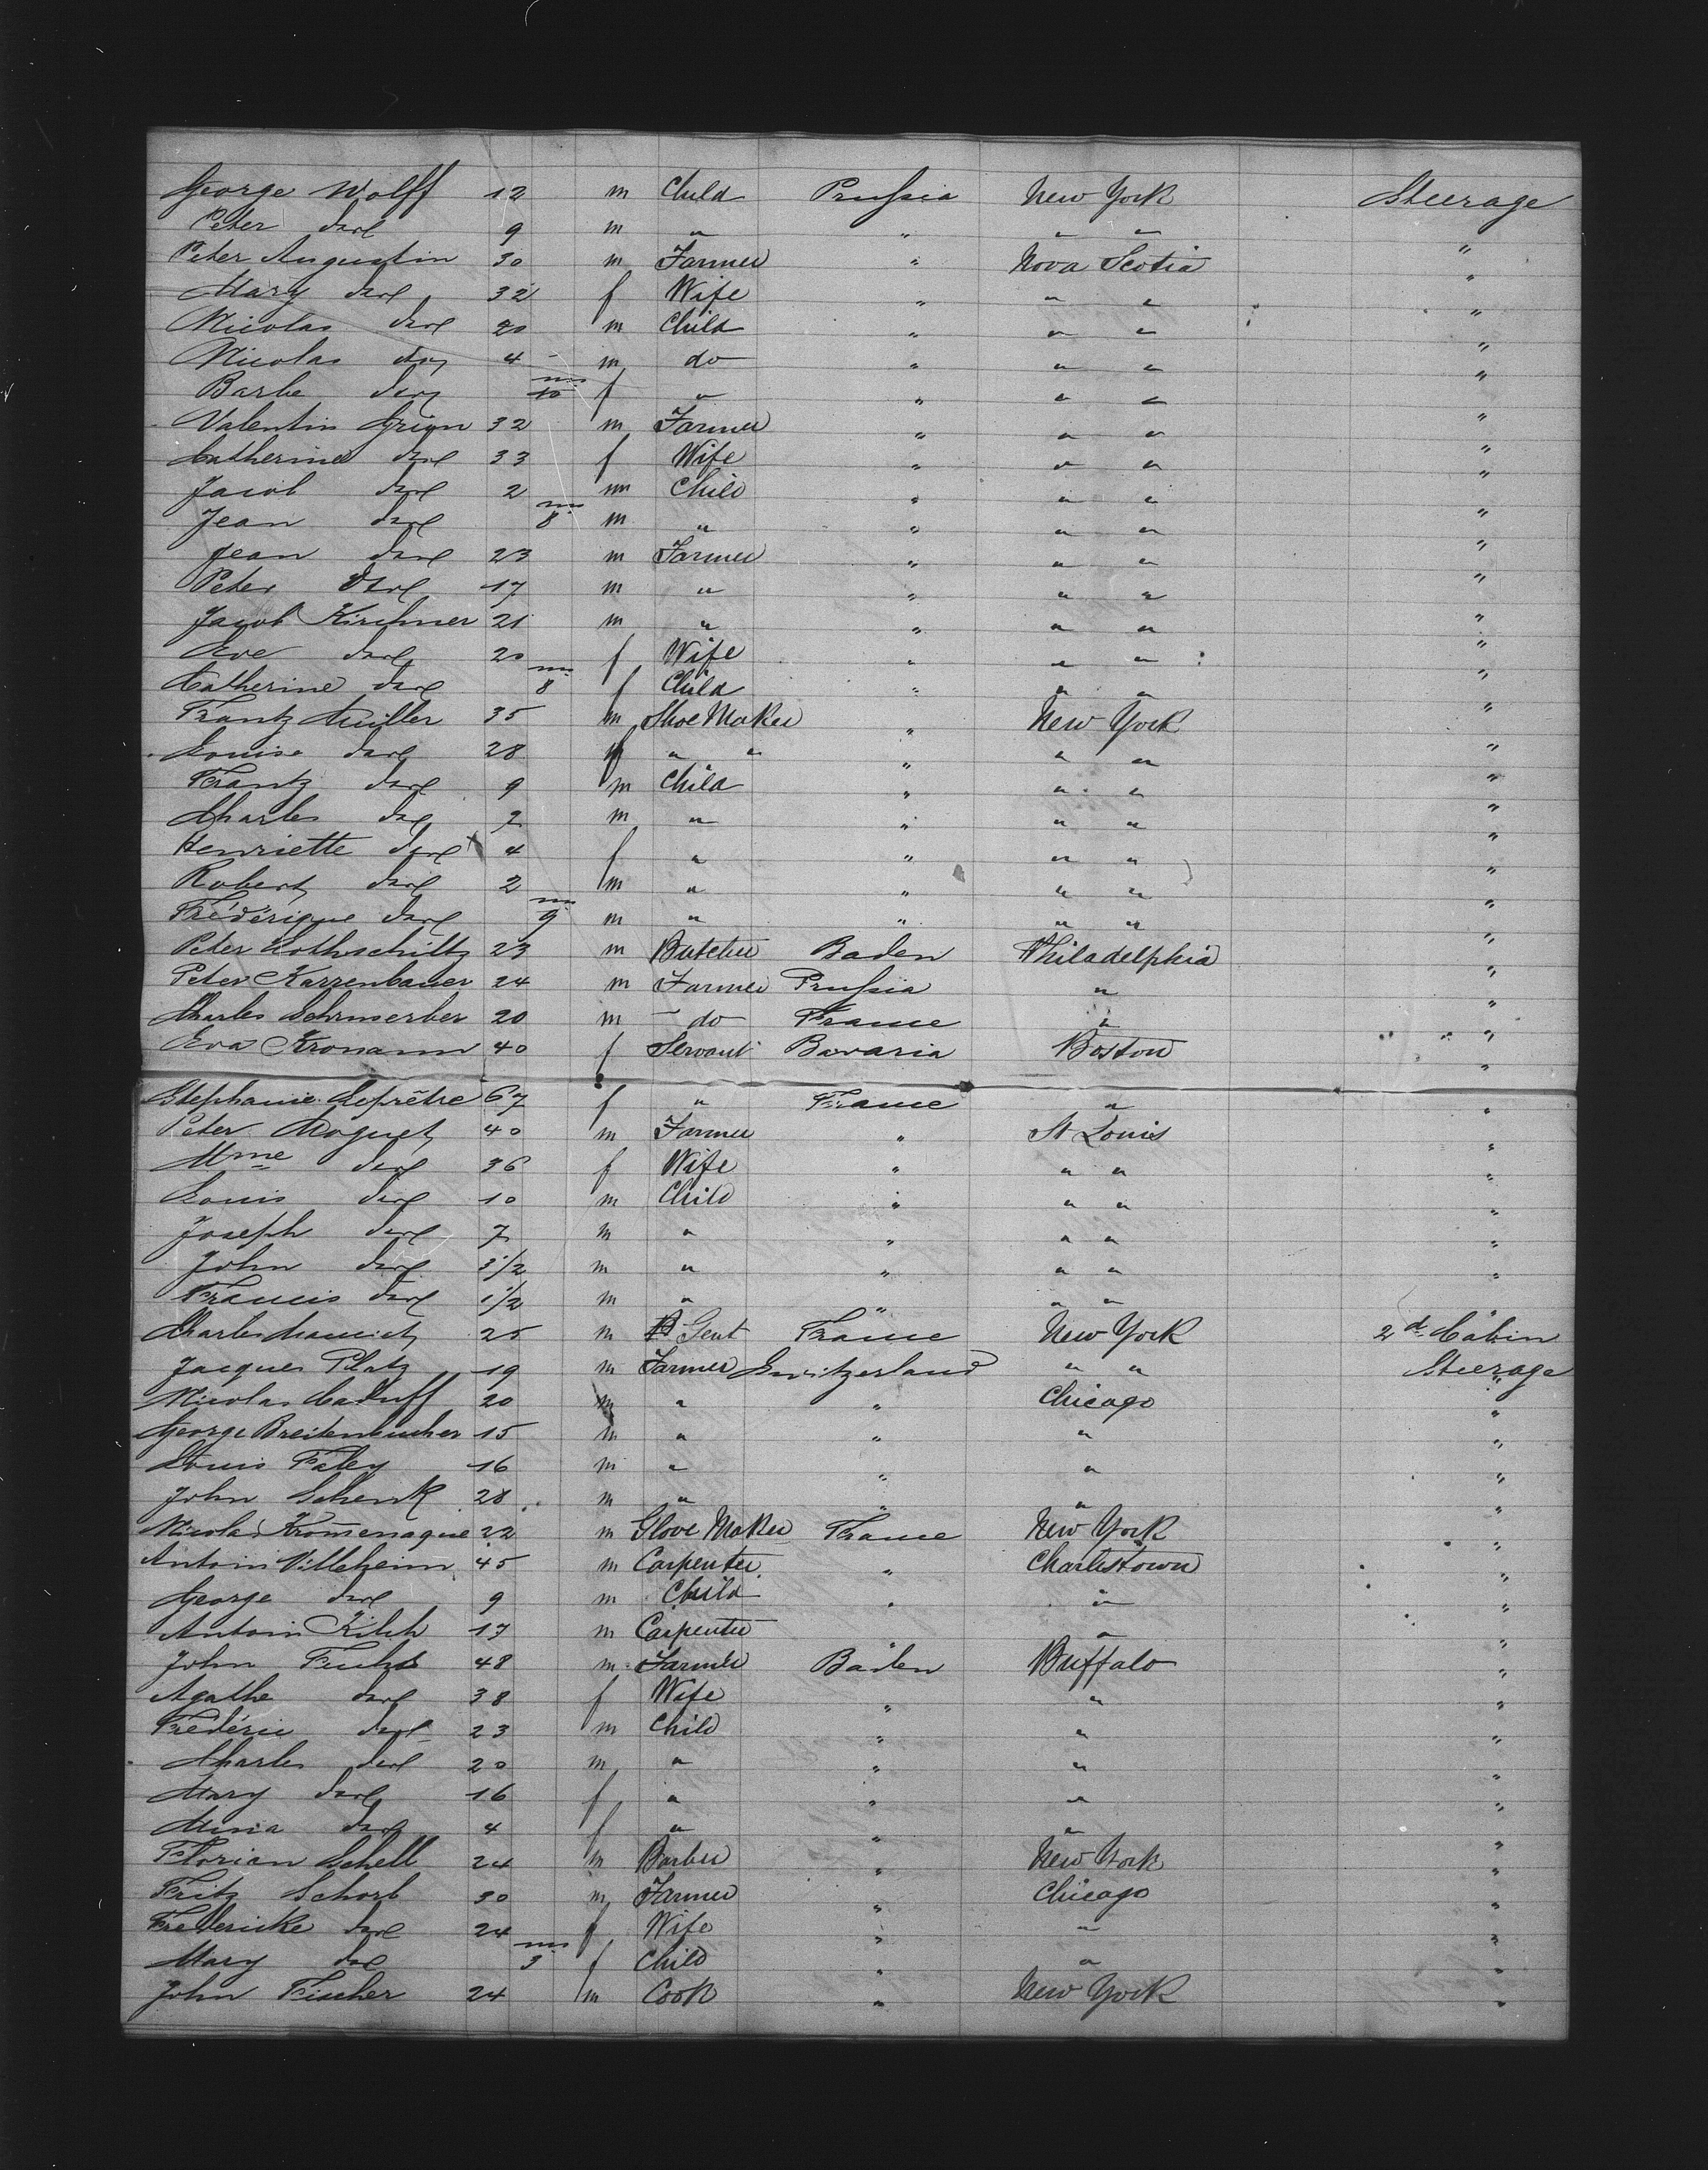 George Wolff 12 m Child Prussia New York Steerage
Peter do 9 m " " " " "
Peter Augustin 30 m Farmer " Nova Scotia "
Mary do 32 f Wife " " " "
Nicolas do 20 m Child " " " "
Nicolas do 4 m do " " " "
Barbe do ms 10 f " " " " "
Valentin Grion 32 m Farmer " " " "
Catherine do 33 f Wife " " " "
Jacob do 2 m Child " " " "
Jean do ms 8 m " " " " "
Jean do 23 m Farmer " " " "
Peter do 17 m " " " " "
Jacob Kirchner 21 m " " " " "
Eve do 20 f Wife " " " "
Catherine do ms 8 f Child " " " "
Frantz Muller 35 m Shoe Maker " New York "
Louise do 28 f " " " " " "
Frantz do 9 m Child " " " "
Charles do 7 m " " " " "
Henriette do 4 f " " " " "
Robert do 2 m " " " " "
Frédérique do ms 9 m " " " " "
Peter Rothschiltz 23 m Butcher Baden Philadelphia "
Peter Karrenbauer 24 m Farmer Prussia " "
Charles Schmerber 20 m do France " "
Eva Kronann 40 f Servant Bavaria Boston "
Stephanie Leprêtre 67 f " France " "
Peter Moguet 40 m Farmer " St Louis "
Mme do 36 f Wife " " " "
Louis do 10 m Child " " " "
Joseph do 7 m " " " " "
John do 3 1/2 m " " " " "
Francis do 1 1/2 m " " " " "
Charles 25 m Gent France New York 2d Cabin
Jacques Platz 19 m Farmer Switzerland " " Steerage
Nicolas Caduff 20 m " " Chicago "
George Breitenbucher 15 m " " " "
Louis Faley 16 m " " " "
John Schenk 28 m " " " "
Nicolas Kromenaque 22 m Glove Maker France New York "
Antoin Villeheim 45 m Carpenter " Charlestown "
George do 9 m Child " " "
Antoin Kilch 17 m Carpenter " " "
John 48 m Farmer Baden Buffalo "
Agathe do 38 f Wife " " "
Frédéric do 23 m Child " " "
Charles do 20 m " " " "
Mary do 16 f " " " "
Mina do 4 f " " " "
Florian Schell 24 m Barber " New York "
Fritz Schorb 30 m Farmer " Chicago "
Fredericke do 24 f Wife " " "
Mary do ms 3 f Child " " "
John Fischer 24 m Cook " New York "